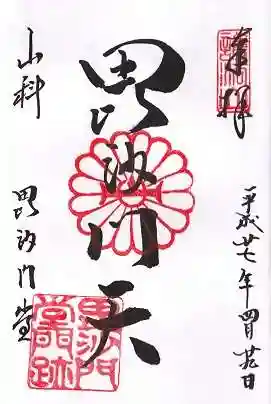 奉拝
平成廿七年四月廿九日
毘沙門天
山科 毘沙門堂
毘沙門
堂門跡